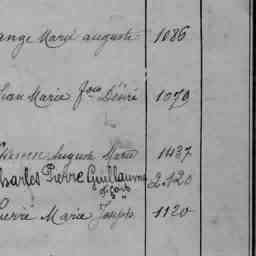 ange Marie auguste 1086
Jean Marie fois Désiré 1079
Auguste Marie 1437
Charles Pierre Guillaume 2.120
fçois
Pierre Marie Joseph 1120